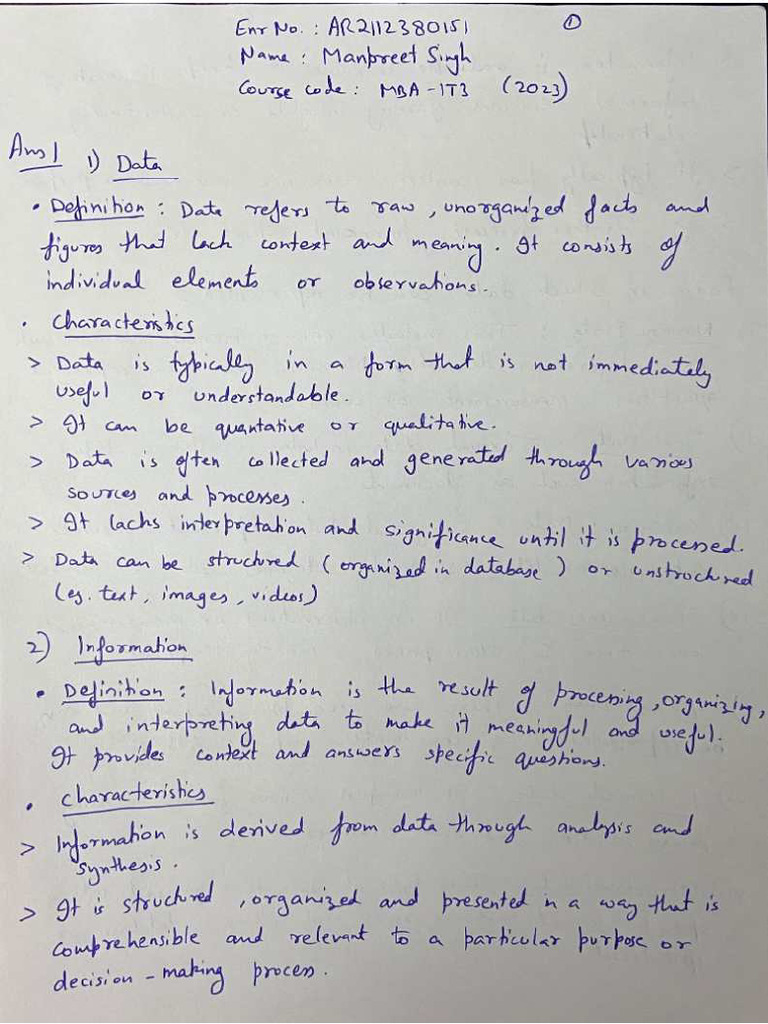 Enr No. : AR2112380151
①
Name : Manpreet Singh
Course code : MBA-IT3 (2023)
Ans 1 1) Data
• Definition : Data refers to raw, unorganized facts and
figures that lack context and meaning. It consists of
individual elements or observations.
• Characteristics
> Data is typically in a form that is not immediately
useful or understandable.
> It can be quantative or qualitative.
> Data is often collected and generated through various
sources and processes.
> It lacks interpretation and significance until it is processed.
> Data can be structured (organized in database) or unstructured
(eg. text, images, videos)
2) Information
• Definition : Information is the result of processing, organizing,
and interpreting data to make it meaningful and useful.
It provides context and answers specific questions.
• Characteristics
> Information is derived from data through analysis and
synthesis.
> It is structured, organized and presented in a way that is
comprehensible and relevant to a particular purpose or
decision-making process.